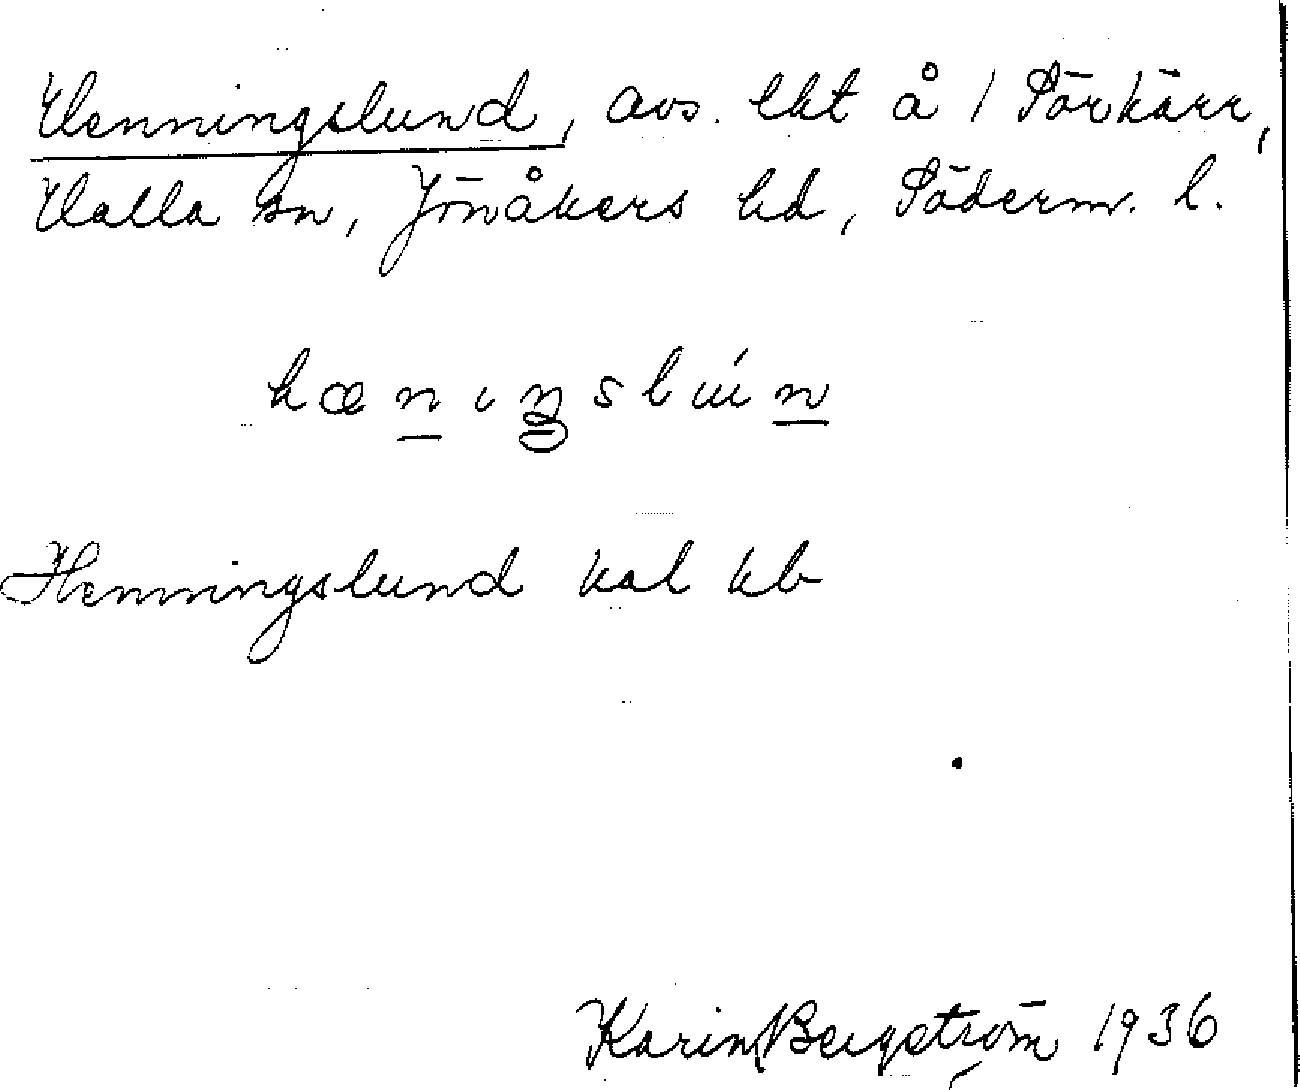 Henningslund, avs. lht å 1 Sörkärr,
Halla sn, Jönåkers hd, Söderm. l.
hæniŋslún
Henningslund kal kb
Karin Bergström 1936